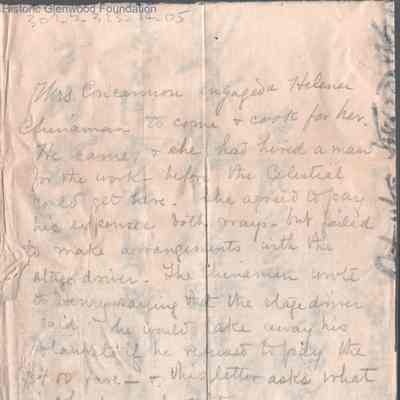 Historic Glenwood Foundation
Mrs. Concannon engaged a Helena
Chinaman to come & cook for her.
He came, & she had hired a man
for the work before the Celestial
could get here. She agreed to pay
his expenses both ways - but failed
to make arrangements with the
stage driver. The Chinaman wrote
to saying that the stage driver
said he would take away his
blankets if he refused to pay the
$4.00 fare - & this letter asks what